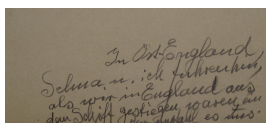 In Ost-England
Selma u. ich fuhren hin,
als wir in England aus
dem Schiff gestiegen waren an
es uns.